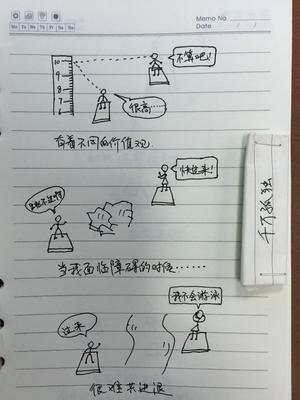 Memo No.
Mo Tu We Th Fr Sa Su
Date ( / )
10
9
8
7
6
不算吧!
很高……
有着不同的价值观
快过来!
千万孤独
当我面临障碍的时候……
我不会游泳
过来
很难共进退